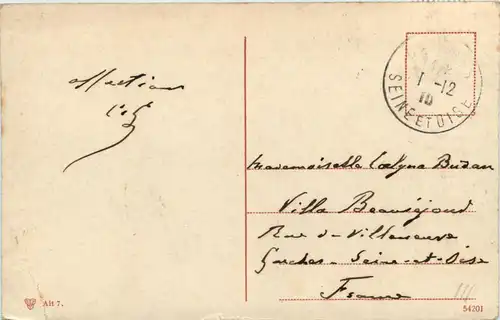 affection
1 -12
10
SEINE ET OISE
Mademoiselle Budan
Villa Beauséjour
Rue de Villeneuve
Garches - Seine-et-Oise
France
Alt 7.
54201